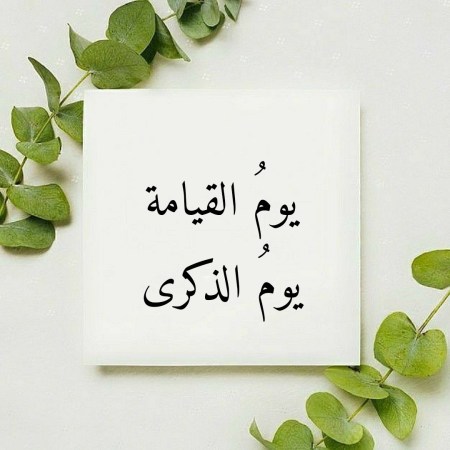 يومُ القيامة
يومُ الذكرى